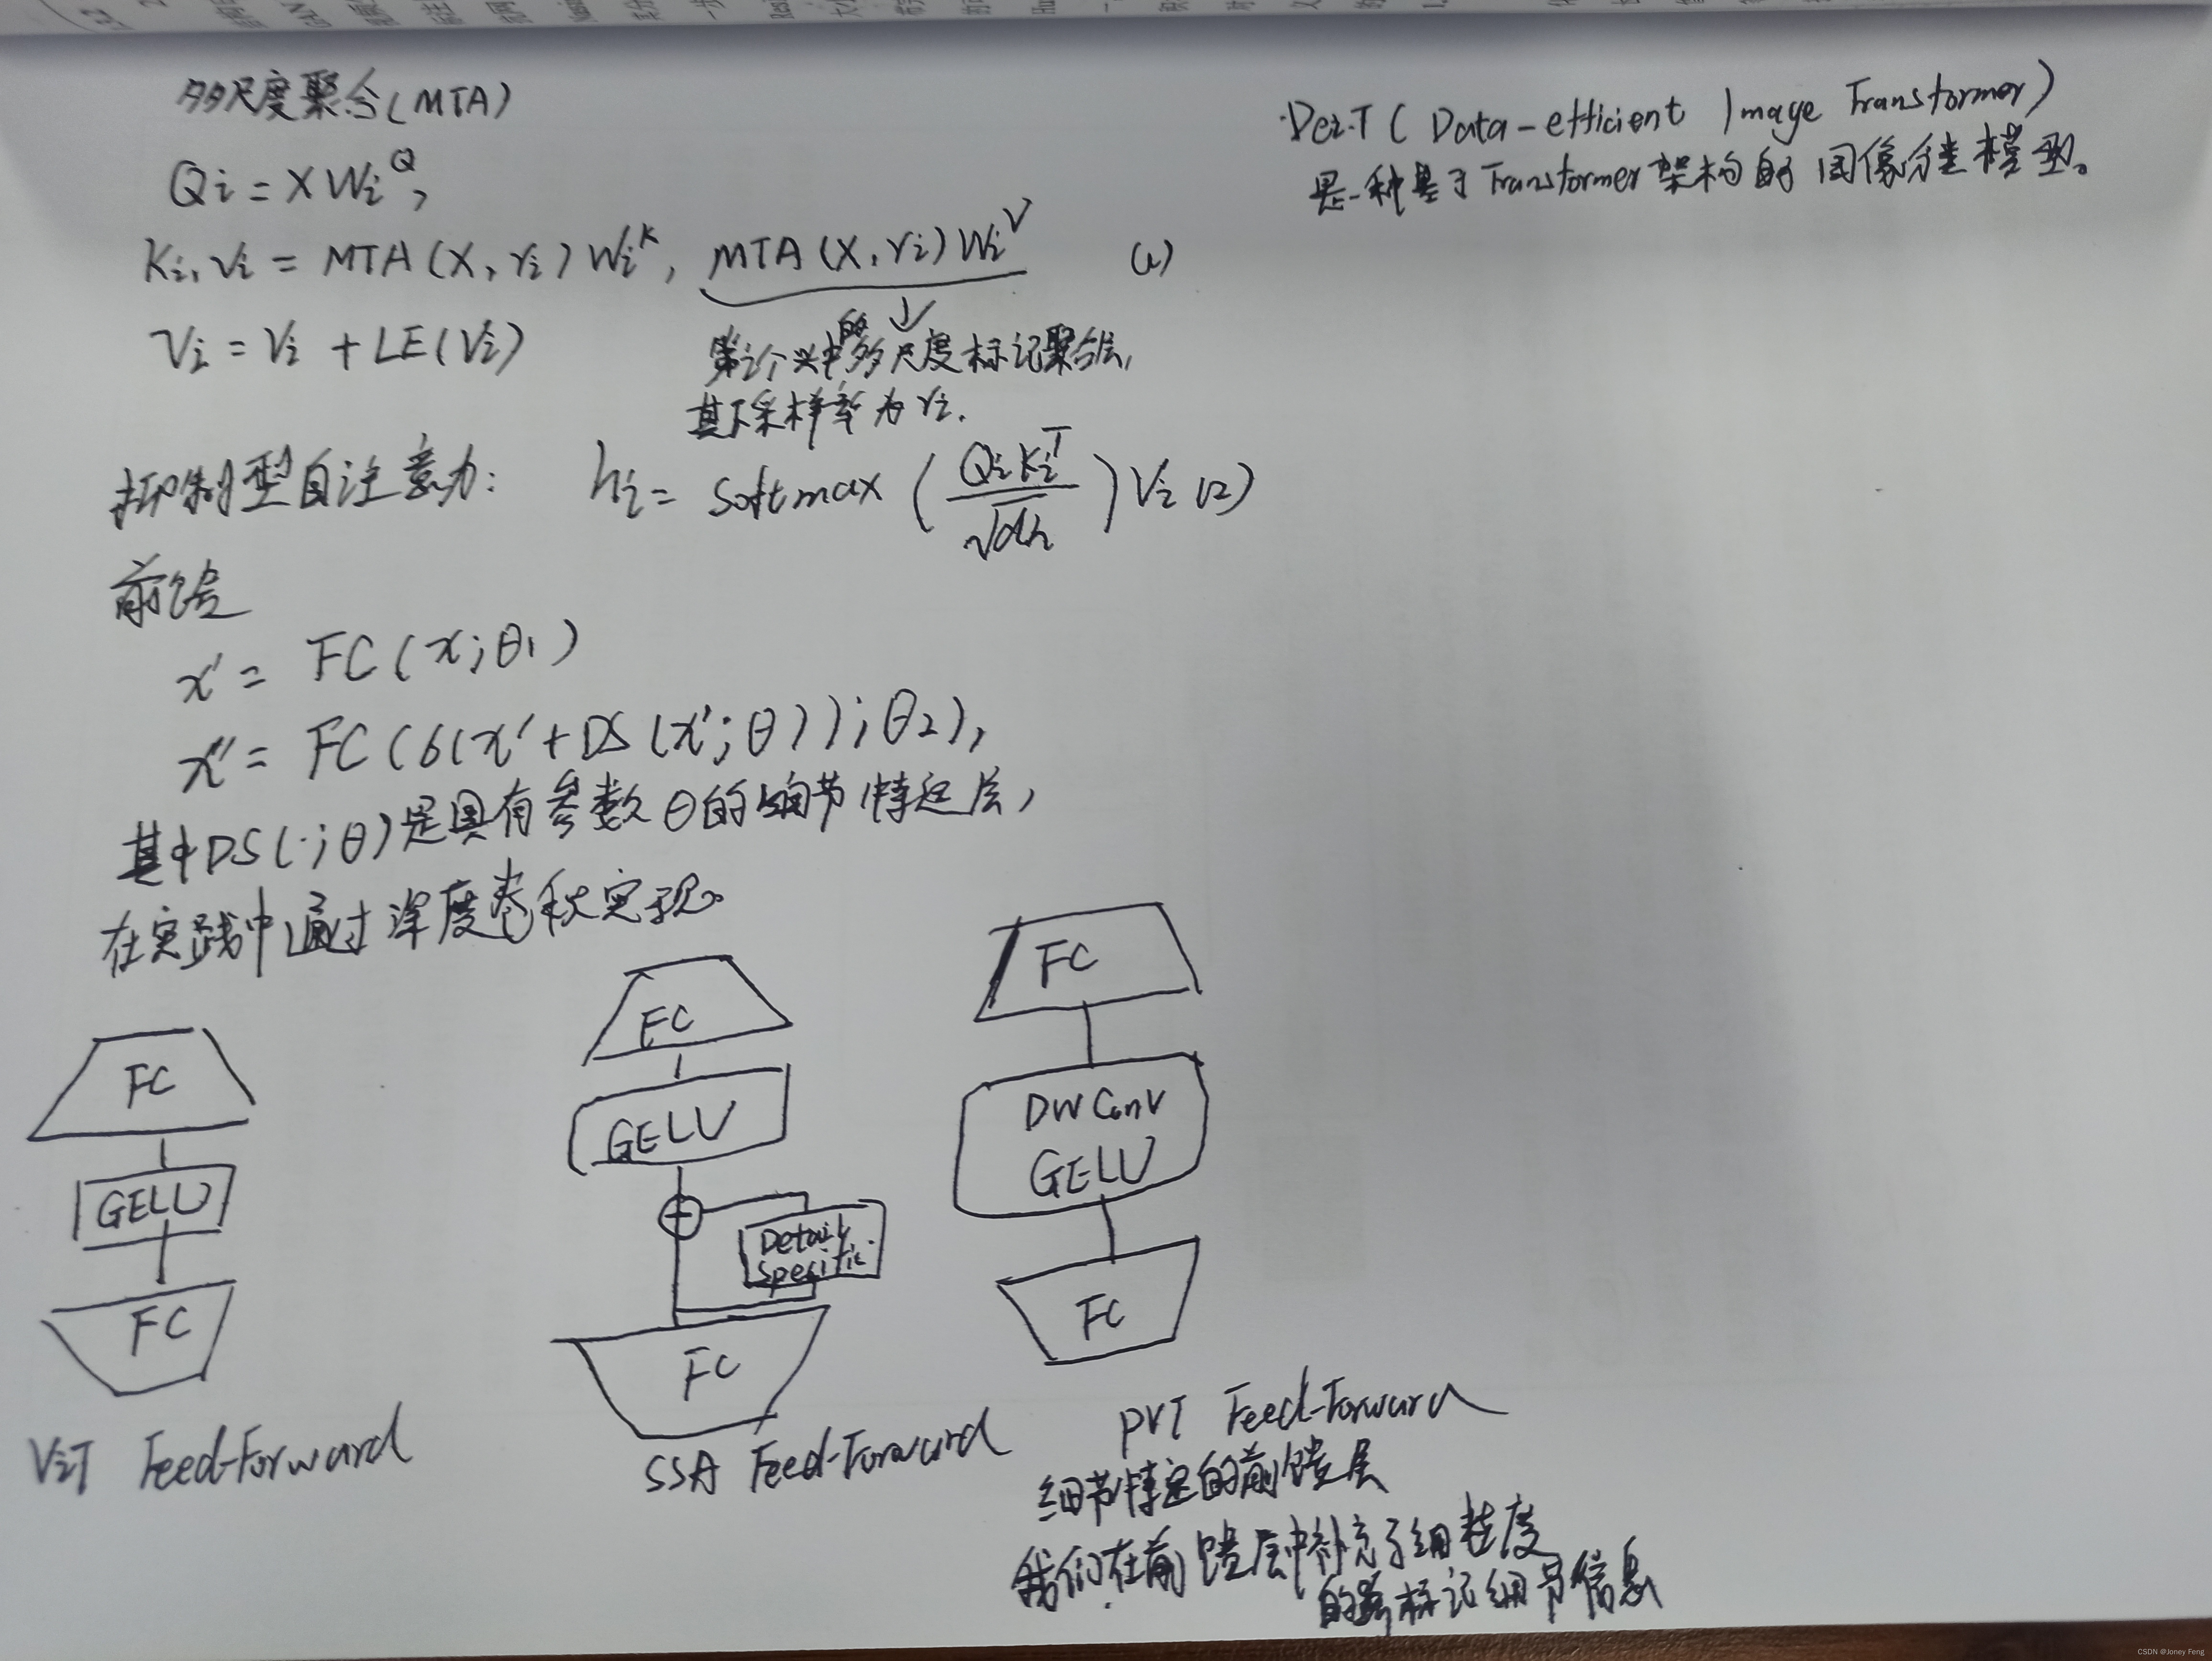 多尺度聚合(MTA)
Qi = XWi^Q,
Ki, Vi = MTA(X, ri)Wi^K, MTA(X, ri)Wi^V (1)
Vi = Vi + LE(Vi)
第i个头中的多尺度标记聚合层,
其下采样率为ri.
抑制型自注意力: hi = Softmax(QiKi^T/√dh)Vi (2)
前馈
x' = FC(x;θ1)
x'' = FC(σ(x'+DS(x';θ));θ2),
其中DS(·;θ)是具有参数θ的细节特定层,
在实践中通过深度卷积实现。
FC
GELU
FC
ViT Feed-Forward
FC
GELU
+
Detail
Specific
FC
SSA Feed-Forward
FC
DWConv
GELU
FC
PVT Feed-Forward
细节特定的前馈层
我们在前馈层中补充了细粒度
的跨标记细节信息
·DeiT(Data-efficient Image Transformer)
是一种基于Transformer架构的图像分类模型。
CSDN @Joney Feng